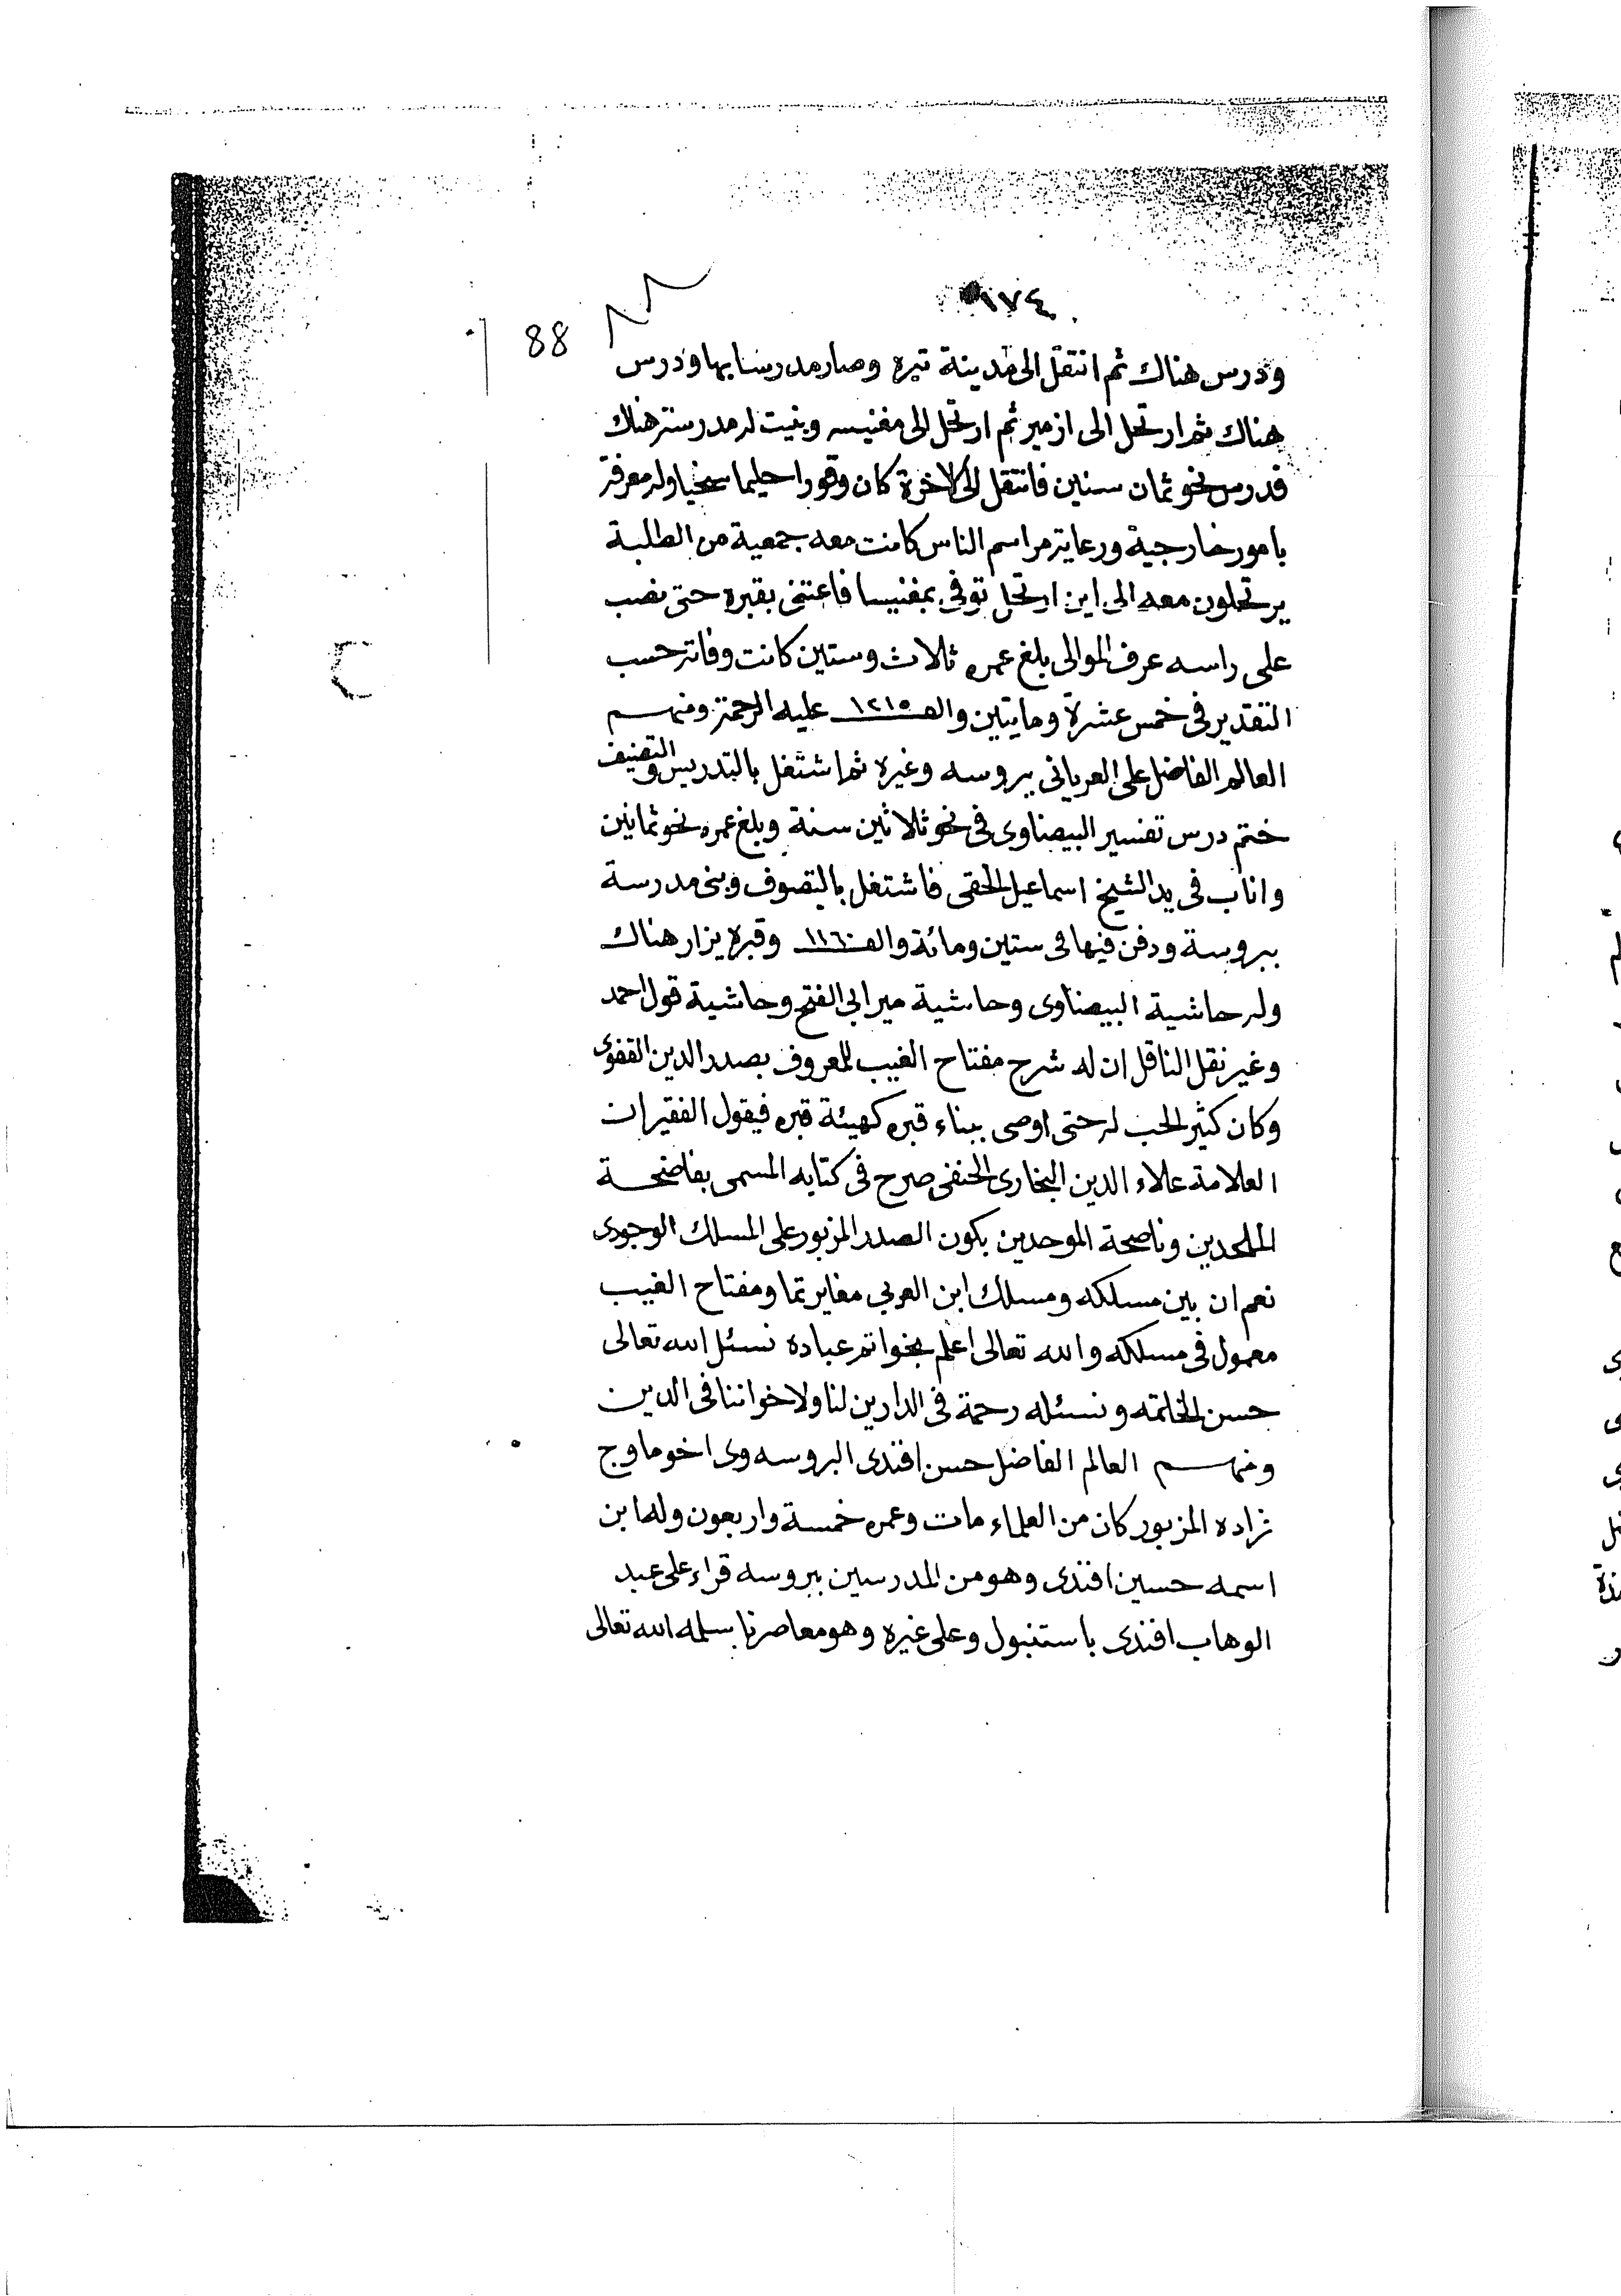 ١٧٤
88
ودرس هناك ثم انتقل الى مدينة تيره وصار مدرسا بها ودرس
هناك ثم ارتحل الى ازمير ثم ارتحل الى مغنيسه وبنيت له مدرسته هناك
فدرس نحو ثمان سنين فانتقل الى الاخرة كان وقورا حليما سخيا وله معرفة
بامور خارجية ورعاية مراسم الناس كانت معه جمعية من الطلبة
يرتحلون معه الى اين ارتحل توفى بمغنيسا فاعتنى بقبره حتى نصب
على راسه عرف الموالى بلغ عمره ثلاث وستين كانت وفاته حسب
التقدير فى خمس عشرة ومايتين والف ١٢١٥ عليه الرحمة ومنهم
العالم الفاضل على العريانى ببروسه وغيره ثم اشتغل بالتدريس والتصنيف
ختم درس تفسير البيضاوى فى نحو ثلاثين سنة وبلغ عمره نحو ثمانين
واناب فى يد الشيخ اسماعيل الحقى فاشتغل بالتصوف وبنى مدرسة
ببروسة ودفن فيها فى ستين ومائة والف ١١٦٠ وقبره يزار هناك
وله حاشية البيضاوى وحاشية مير ابى الفتح وحاشية قول احمد
وغير نقل الناقل ان له شرح مفتاح الغيب للمعروف بصدر الدين القنوى
وكان كثير الحب له حتى اوصى ببناء قبره كهيئة قبره فيقول الفقير ان
العلامة علاء الدين البخارى الحنفى صرح فى كتابه المسمى بفاضحة
الملحدين وناصحة الموحدين بكون الصدر المزبور على المسلك الوجودى
نعم ان بين مسلكه ومسلك ابن العربي مغايرتما ومفتاح الغيب
معمول فى مسلكه والله تعالى اعلم بخواتم عباده نسئل الله تعالى
حسن الخاتمه ونسئله رحمة فى الدارين لنا ولاخواننا فى الدين
ومنهم العالم الفاضل حسن افندى البروسه وى اخو ماوج
زاده المزبور كان من العلماء مات وعمره خمسة واربعون وله ابن
اسمه حسين افندى وهو من المدرسين ببروسه قراء على عبد
الوهاب افندى باستنبول وعلى غيره وهو معاصرنا سلمه الله تعالى